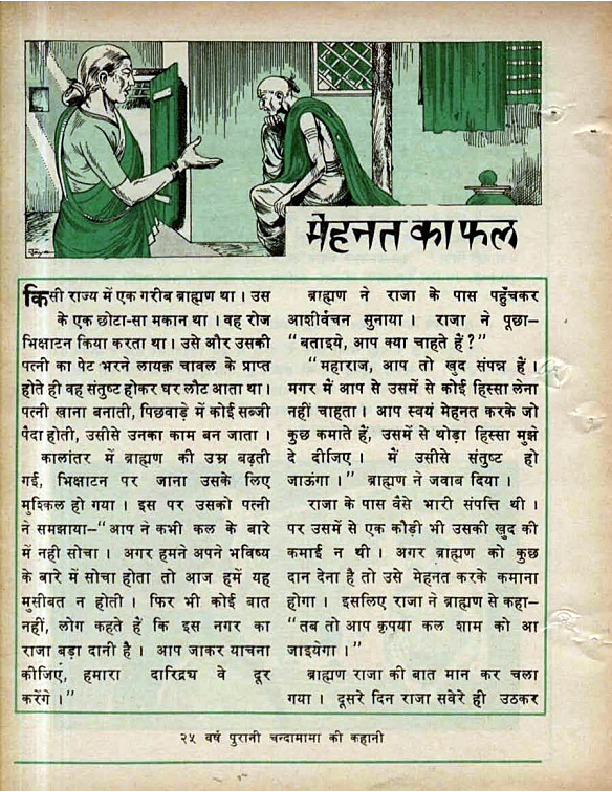 मेहनत का फल
किसी राज्य में एक गरीब ब्राह्मण था । उस
के एक छोटा-सा मकान था । वह रोज
भिक्षाटन किया करता था । उसे और उसकी
पत्नी का पेट भरने लायक़ चावल के प्राप्त
होते ही वह संतुष्ट होकर घर लौट आता था ।
पत्नी खाना बनाती, पिछवाड़े में कोई सब्जी
पैदा होती, उसीसे उनका काम बन जाता ।
कालांतर में ब्राह्मण की उम्र बढ़ती
गई, भिक्षाटन पर जाना उसके लिए
मुश्किल हो गया । इस पर उसकी पत्नी
ने समझाया–“आप ने कभी कल के बारे
में नहीं सोचा । अगर हमने अपने भविष्य
के बारे में सोचा होता तो आज हमें यह
मुसीबत न होती । फिर भी कोई बात
नहीं, लोग कहते हैं कि इस नगर का
राजा बड़ा दानी है । आप जाकर याचना
कीजिए, हमारा दारिद्र्य वे दूर
करेंगे ।”
ब्राह्मण ने राजा के पास पहुँचकर
आशीर्वचन सुनाया । राजा ने पूछा–
“बताइये, आप क्या चाहते हैं ?”
“महाराज, आप तो खुद संपन्न हैं ।
मगर में आप से उसमें से कोई हिस्सा लेना
नहीं चाहता । आप स्वयं मेहनत करके जो
कुछ कमाते हैं, उसमें से थोड़ा हिस्सा मुझे
दे दीजिए । में उसीसे संतुष्ट हो
जाऊंगा ।” ब्राह्मण ने जवाब दिया ।
राजा के पास वैसे भारी संपत्ति थी ।
पर उसमें से एक कौड़ी भी उसकी खुद की
कमाई न थी । अगर ब्राह्मण को कुछ
दान देना है तो उसे मेहनत करके कमाना
होगा । इसलिए राजा ने ब्राह्मण से कहा–
“तब तो आप कृपया कल शाम को आ
जाइयेगा ।”
ब्राह्मण राजा की बात मान कर चला
गया । दूसरे दिन राजा सवेरे ही उठकर
२५ वर्ष पुरानी चन्दामामा की कहानी